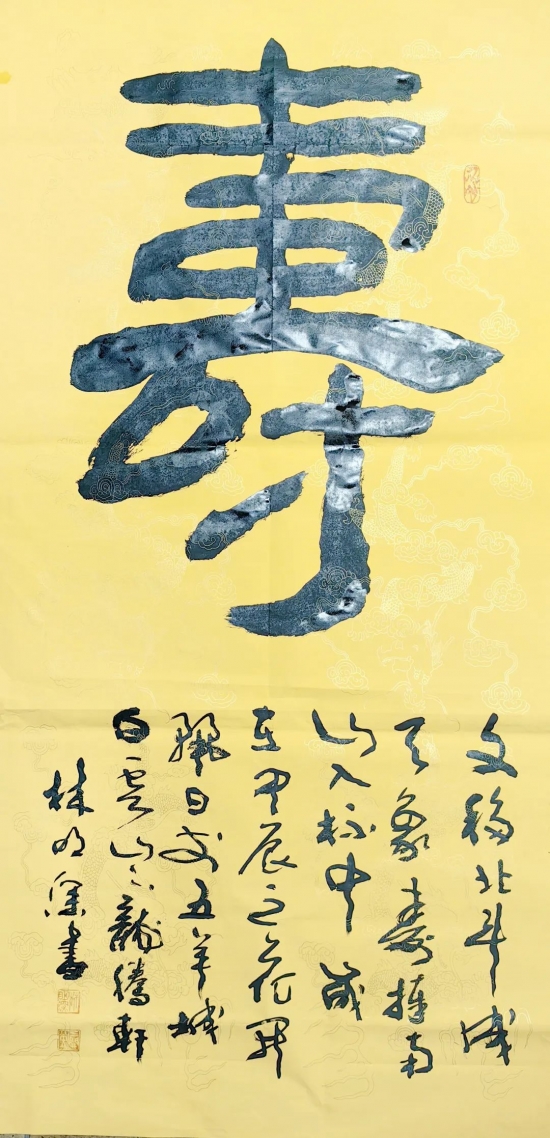 壽
文移北斗成
天象壽捧南
山入杯中歲
在甲辰之
麗日於五羊城
白雲山下龍騰軒
林明深書